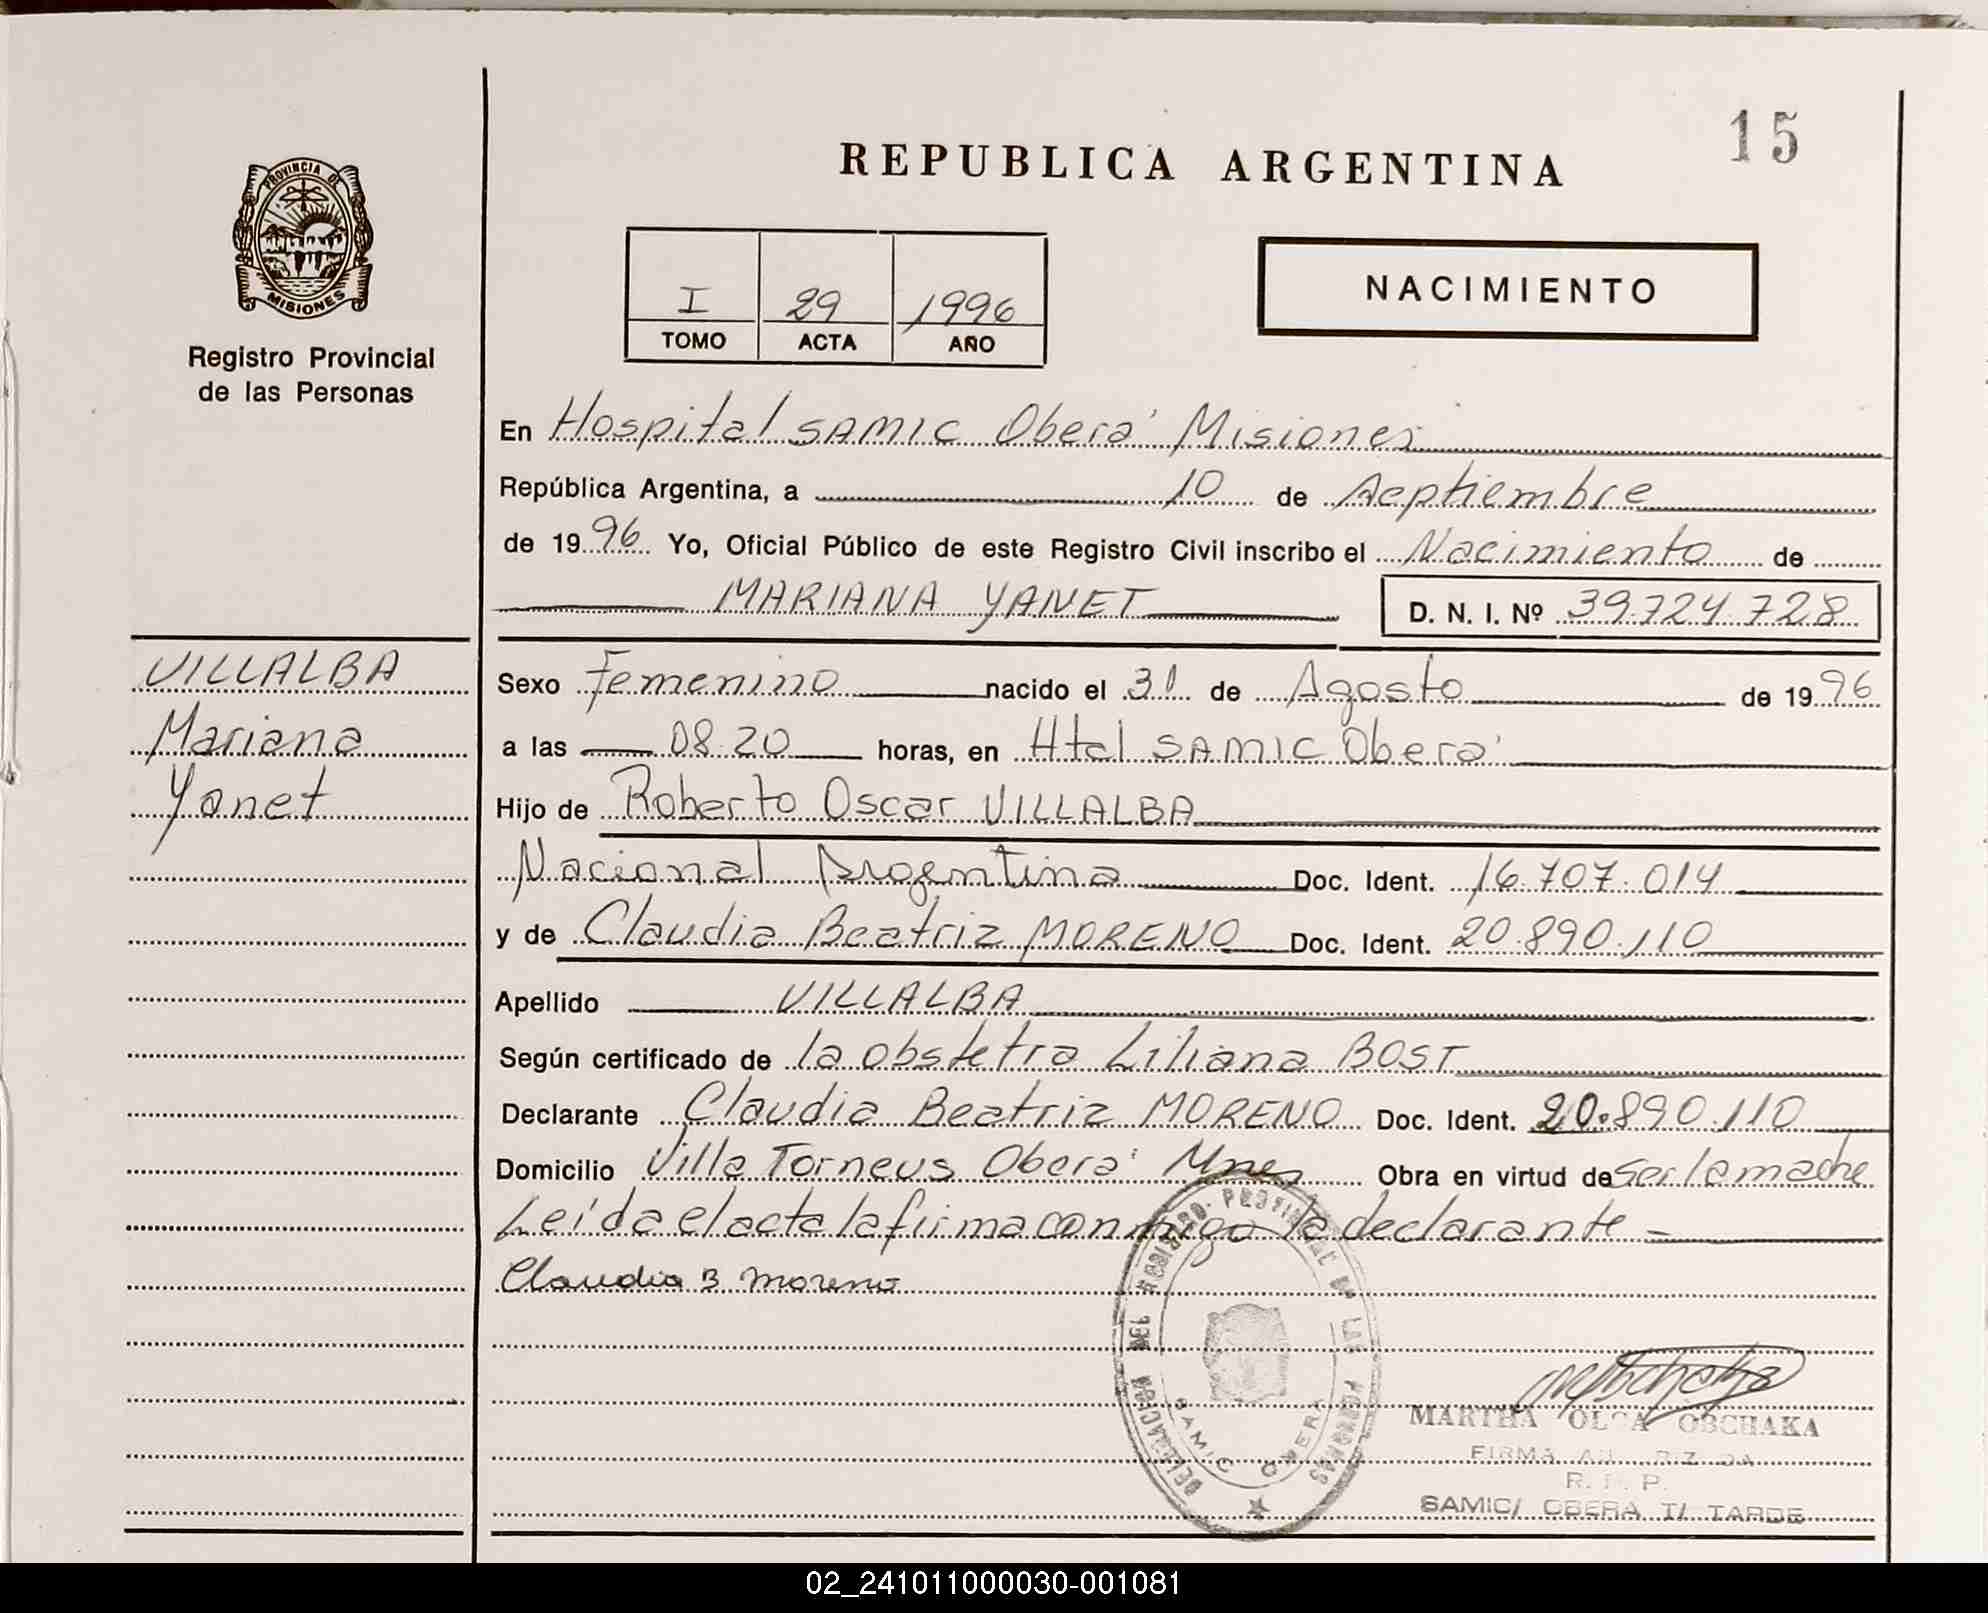 15
REPUBLICA ARGENTINA
PROVINCIA DE
MISIONES
Registro Provincial
de las Personas
I 29 1996
TOMO ACTA AÑO
NACIMIENTO
En Hospital SAMIC Oberá Misiones
República Argentina, a 10 de Septiembre
de 1996 Yo, Oficial Público de este Registro Civil inscribo el Nacimiento de
MARIANA YANET D. N. I. Nº 39.724.728
VILLALBA
Mariana
Yanet
Sexo Femenino nacido el 31 de Agosto de 1996
a las 08.20 horas, en Htal SAMIC Oberá
Hijo de Roberto Oscar VILLALBA
Nacional Argentina Doc. Ident. 16.707.014
y de Claudia Beatriz MORENO Doc. Ident. 20.890.110
Apellido VILLALBA
Según certificado de la obstetra Liliana BOST
Declarante Claudia Beatriz MORENO Doc. Ident. 20.890.110
Domicilio Villa Torneus Oberá Mnes Obra en virtud de ser la madre
Leída el acta la firma conmigo la declarante
Claudia B Moreno
DELEGACION DEL REGISTRO PROVINCIAL DE LAS PERSONAS
SAMIC OBERA
MARTHA OLGA OBCHAKA
FIRMA AUTORIZADA
R. P. P.
SAMIC/ OBERA T/ TARDE
02_241011000030-001081